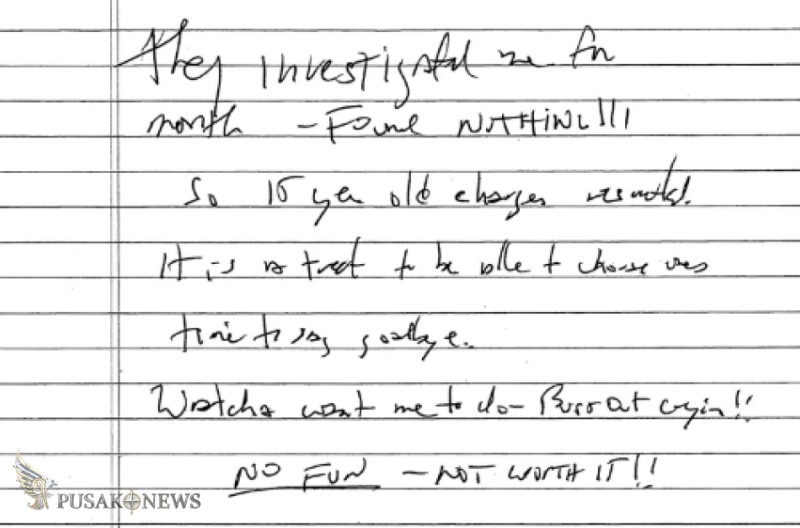 They investigated me for
month – Found NOTHING!!!
So 15 year old charges
It is a treat to be able to choose ones
time to say goodbye.
Watcha want me to do – Burst out cryin!!
NO FUN – NOT WORTH IT!!
PUSAKONEWS